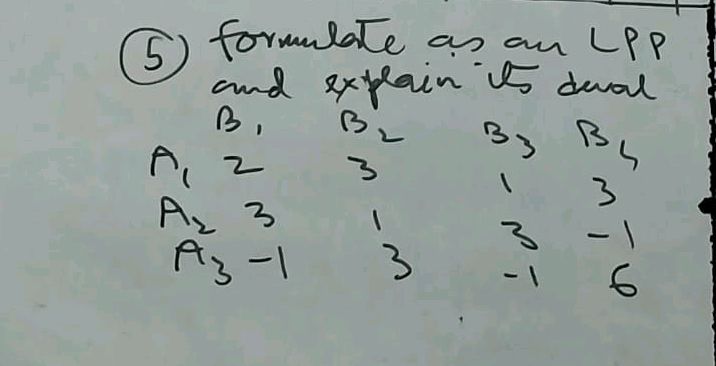 (5) formulate as an LPP
and explain its dual
B1 B2 B3 B4
A1 2 3 1 3
A2 3 1 3 -1
A3 -1 3 -1 6